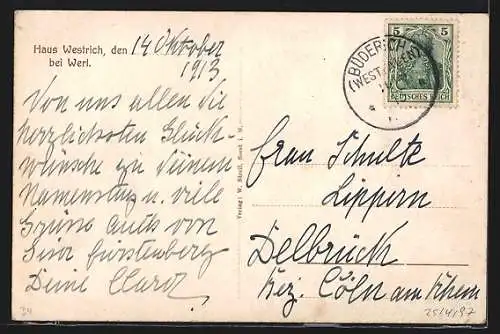 Haus Westrich, den 14 Oktober
bei Werl. 1913
Von uns allen die
herzlichsten Glück-
wünsche zu Deinem
Namenstag u. viele
Grüße auch von
Fürstenberg
Deine Clara
Verlag: W. Strull, Soest i. W.
BÜDERICH
(WESTFALEN)
5 5
DEUTSCHES REICH
Frau Schulte
Lippern
Delbrück
Bez. Cöln am Rhein